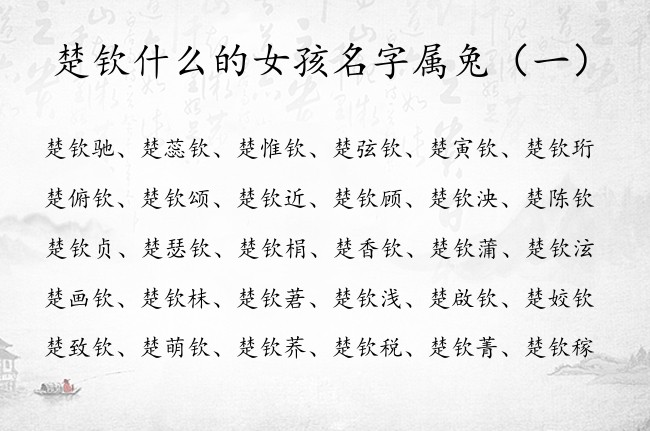 楚钦什么的女孩名字属兔（一）
楚钦驰、楚蕊钦、楚惟钦、楚弦钦、楚寅钦、楚钦珩
楚俯钦、楚钦颂、楚钦近、楚钦顾、楚钦泱、楚陈钦
楚钦贞、楚瑟钦、楚钦梋、楚香钦、楚钦蒲、楚钦泫
楚画钦、楚钦枺、楚钦莙、楚钦浅、楚啟钦、楚姣钦
楚致钦、楚萌钦、楚钦荞、楚钦税、楚钦菁、楚钦稼